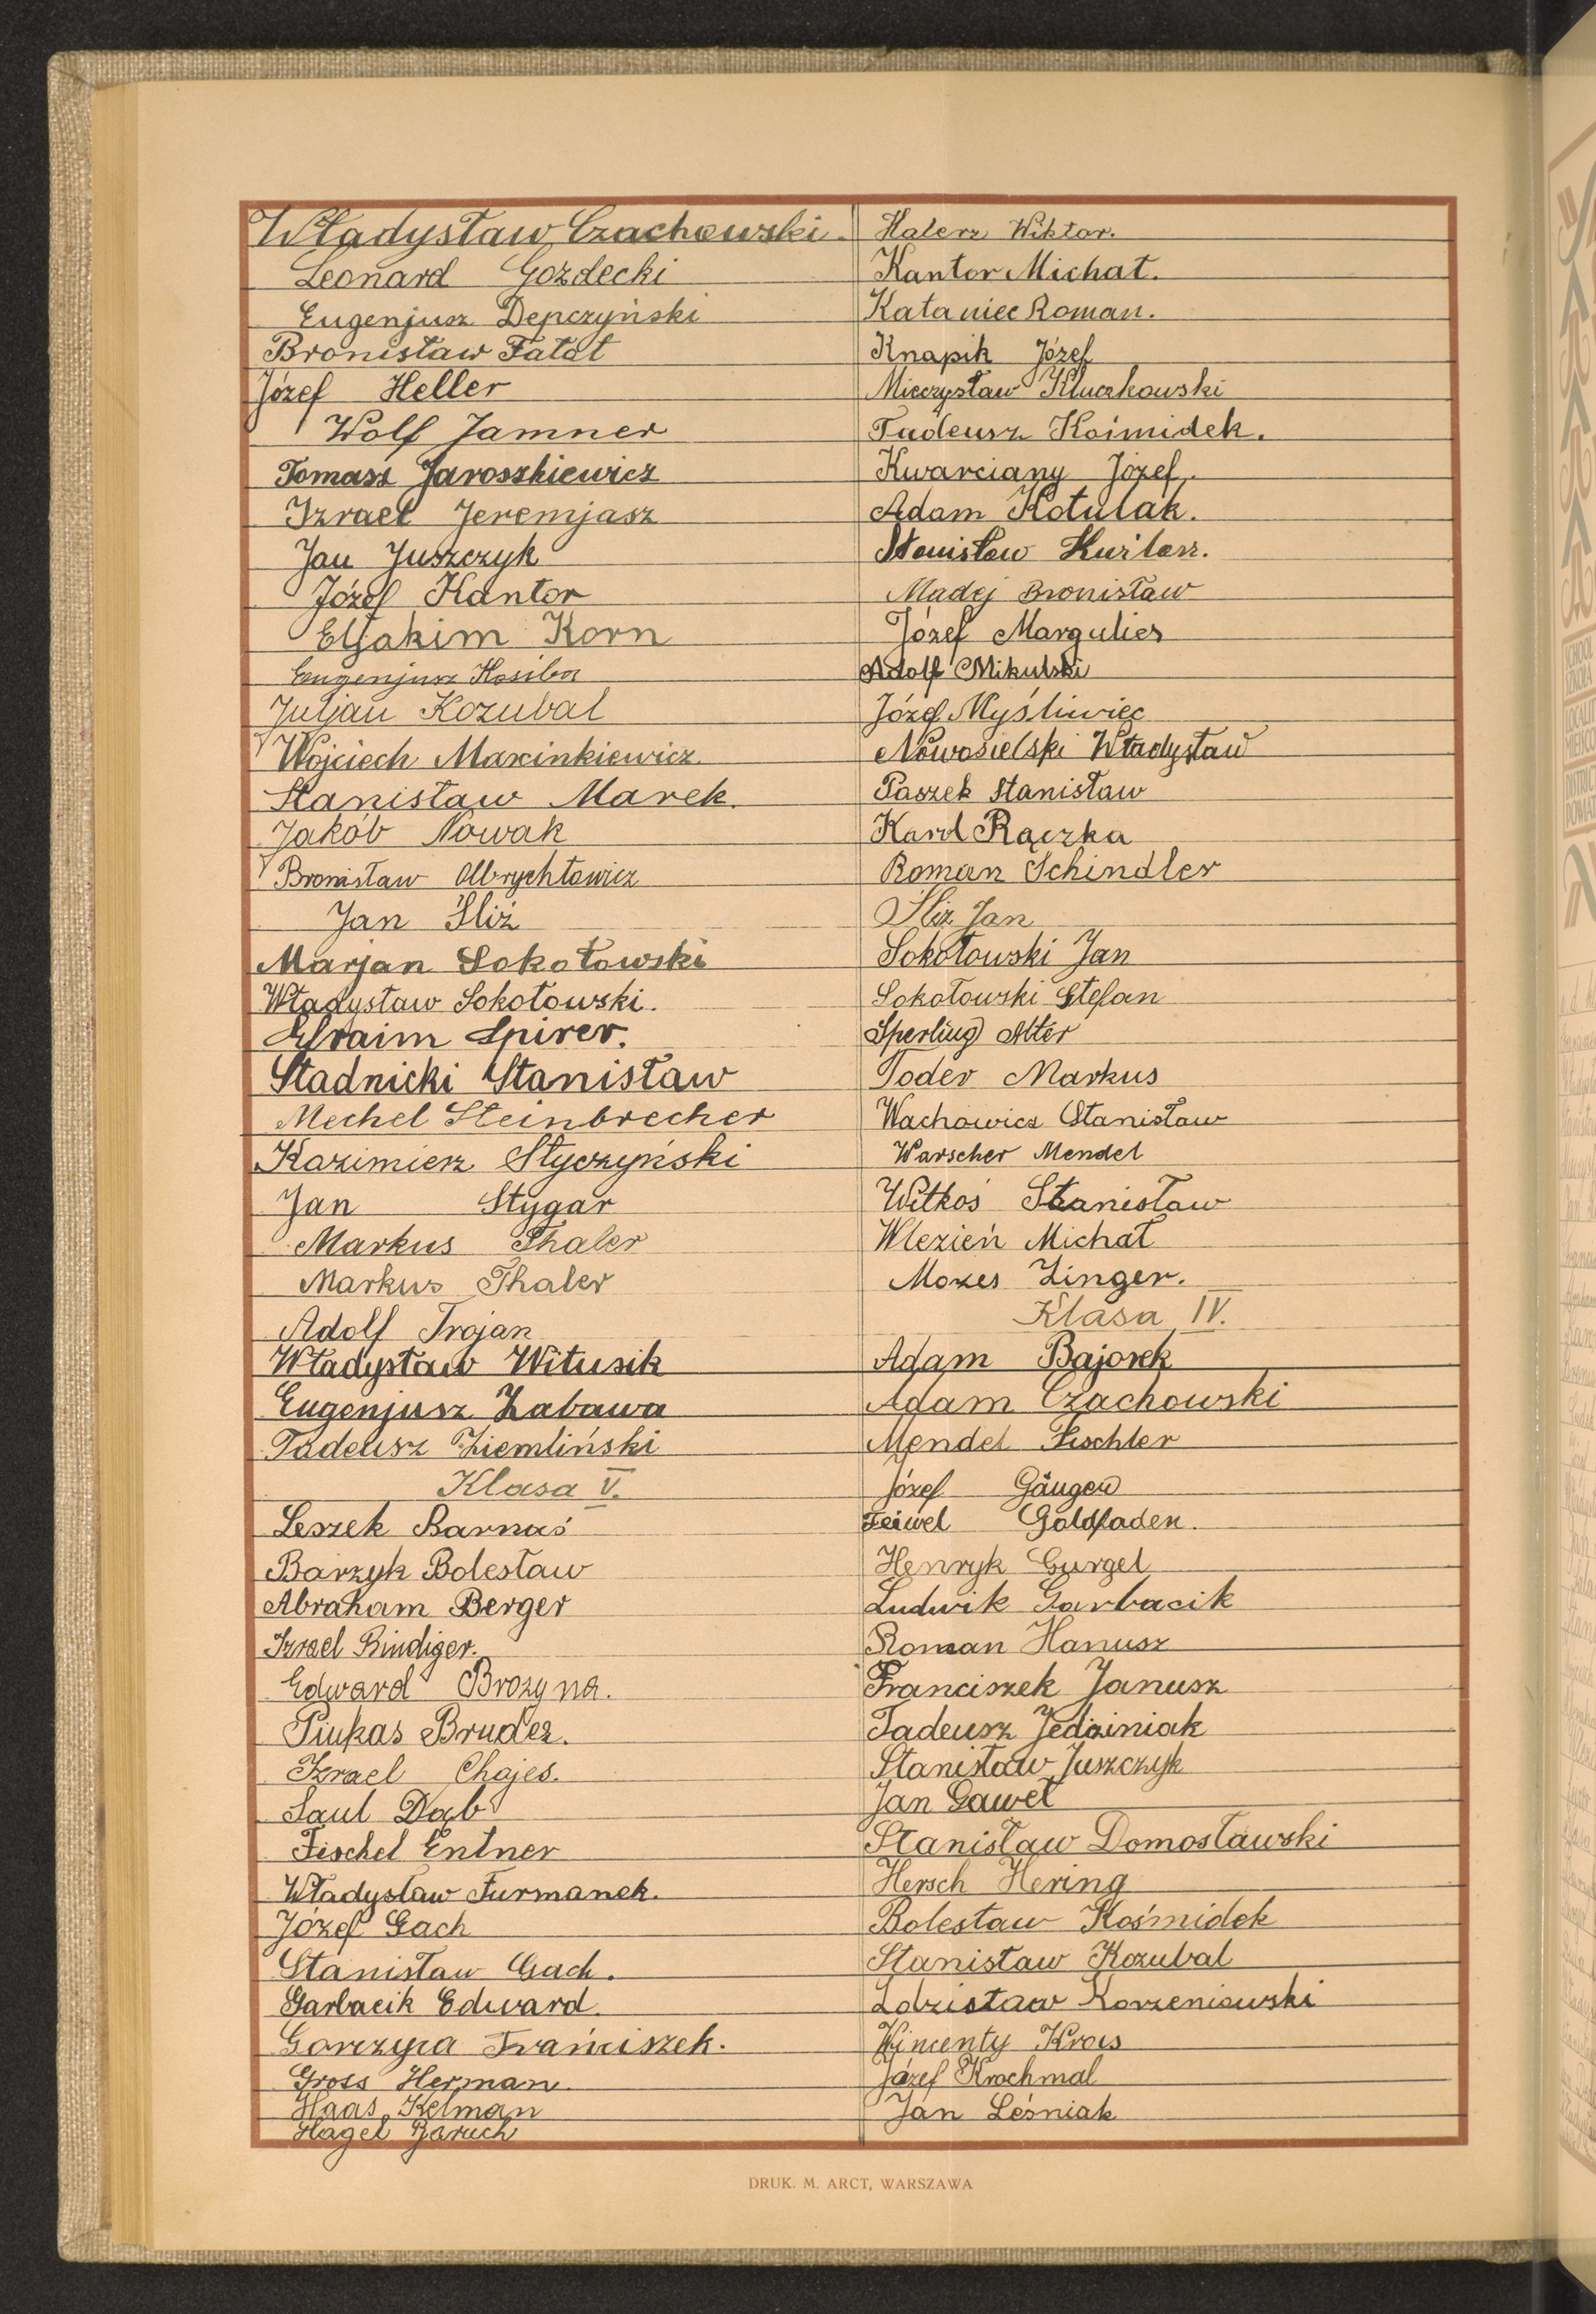 Władysław Czachowski.
Leonard Gozdecki
Eugenjusz Depczyński
Bronisław Fatat
Józef Heller
Wolf Jamner
Tomasz Jaroszkiewicz
Izrael Jeremjasz
Jan Juszczyk
Józef Kantor
Eljakim Korn
Eugenjusz Kosiba
Juljan Kozubal
Wojciech Marcinkiewicz
Stanisław Marek.
Jakób Nowak
Bronisław Olbrychtowicz
Jan Śliż
Marjan Sokołowski
Władysław Sokołowski.
Efraim Spirer.
Stadnicki Stanisław
Mechel Steinbrecher
Kazimierz Styczyński
Jan Stygar
Markus Thaler
Markus Thaler
Adolf Trojan
Władysław Witusik
Eugenjusz Zabawa
Tadeusz Ziemliński
Klasa V.
Leszek Barnaś
Barzyk Bolesław
Abraham Berger
Izrael Bindiger.
Edward Brozyna.
Pinkas Bruder.
Izrael Chajes.
Saul Dąb
Fischel Entner
Władysław Furmanek.
Józef Gach
Stanisław Gach.
Garbacik Edward.
Gorczyca Franciszek.
Gross Herman.
Haas Kelman
Hagel Baruch
Halerz Wiktor.
Kantor Michał.
Kataniec Roman.
Knapik Józef
Mieczysław Kluczkowski
Tadeusz Kośmidek.
Kwarciany Józef.
Adam Kotulak.
Stanisław Kuźlarz.
Madej Bronisław
Józef Margulies
Adolf Mikulski
Józef Myśliwiec
Nowosielski Władysław
Paszek Stanisław
Karol Rączka
Roman Schindler
Śliż Jan
Sokołowski Jan
Sokołowski Stefan
Sperling Alter
Toder Markus
Wachowicz Stanisław
Warscher Mendel
Witkoś Stanisław
Wlezień Michał
Mozes Zinger.
Klasa IV.
Adam Bajorek
Adam Czachowski
Mendel Fischler
Józef Gäuger
Feiwel Goldfaden.
Henryk Gurgel
Ludwik Garbacik
Roman Hanusz
Franciszek Janusz
Tadeusz Jedziniak
Stanisław Juszczyk
Jan Gaweł
Stanisław Domosławski
Hersch Hering
Bolesław Kośmidek
Stanisław Kozubal
Zdzisław Korzeniowski
Wincenty Kras
Józef Krochmal
Jan Leśniak
DRUK. M. ARCT, WARSZAWA